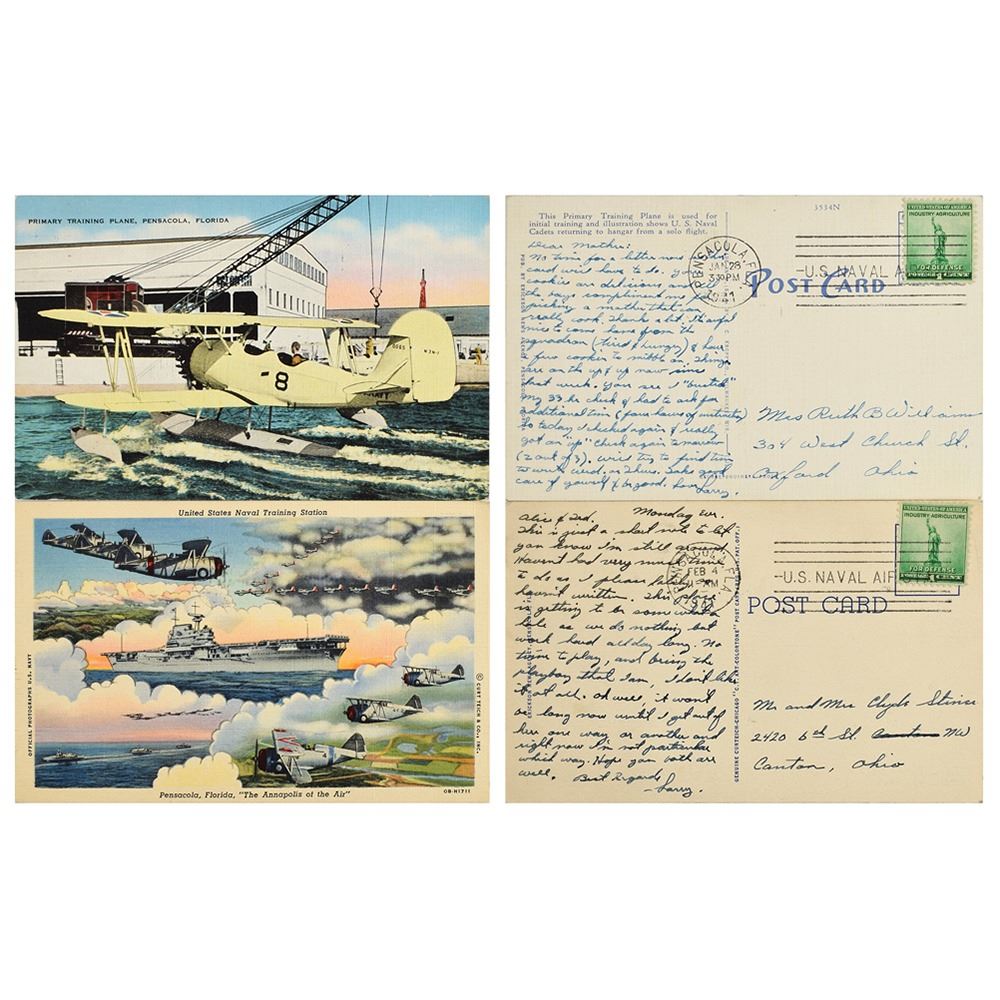 PRIMARY TRAINING PLANE, PENSACOLA, FLORIDA
8
NAVY
United States Naval Training Station
OFFICIAL PHOTOGRAPHS U.S. NAVY
© CURT TEICH & CO., INC.
Pensacola, Florida, "The Annapolis of the Air"
OB-H1711
This Primary Training Plane is used for
initial training and illustration shows U. S. Naval
Cadets returning to hangar from a solo flight.
3534N
PENSACOLA, FLA
JAN 28
330PM
U.S. NAVAL A
POST CARD
UNITED STATES OF AMERICA
INDUSTRY AGRICULTURE
FOR DEFENSE
Dear Mother:
No time for a letter now
card will have to do. Your
cookies are delicious and
the boys compliment me
picking a mother that can
really cook. Thanks a lot. It's awful
nice to come here from the
squadron (tired & hungry) & have
a few cookies to nibble on. Things
are on the up & up now since
last week. You see I "busted"
my 33 hr check & had to ask for
additional time
So today I checked again & really
got an "up". Check again tomorrow
(2 out of 3). Will try to find time
to write Wed. or Thurs. Take good
care of yourself & be good. Love Larry.
Mrs Ruth B Williams
304 West Church St.
Oxford Ohio
PENSACOLA, FLA
FEB 4
U.S. NAVAL AIR
POST CARD
UNITED STATES OF AMERICA
INDUSTRY AGRICULTURE
FOR DEFENSE
GENUINE CURTEICH-CHICAGO "C.T. ART-COLORTONE" POST CARD (REG. U.S. PAT. OFF.)
Monday Eve.
Alice & Ted.
This is just a short note to let
you know I'm still around
Haven't had very much time
to do as I please lately
haven't written. This place
is getting to be somewhat a
bore as we do nothing but
work hard all day long. No
time to play, and being the
playboy that I am, I don't like
it at all. Oh well, it won't
be long now until I get out of
here one way or another and
right now I'm not particular
which way. Hope you both are
well. Best Regards,
-Larry.
Mr and Mrs Clyde Stines
2420 6th St. Canton NW
Canton, Ohio